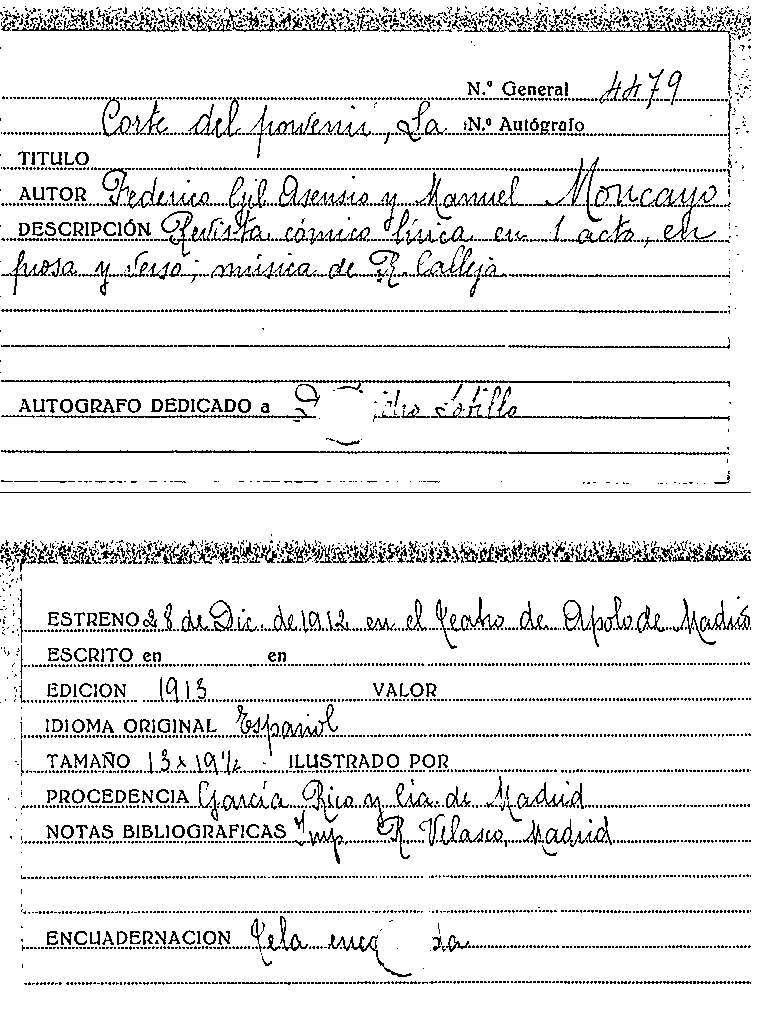 N.º General 4479
Corte del porvenir, La N.º Autógrafo
TITULO
AUTOR Federico Gil Asensio y Manuel Moncayo
DESCRIPCIÓN Revista cómico lírica en 1 acto, en
prosa y verso; música de R. Calleja
AUTOGRAFO DEDICADO a Sotillo
ESTRENO 28 de Dic. de 1912 en el Teatro de Apolo de Madrid
ESCRITO en en
EDICION 1913 VALOR
IDIOMA ORIGINAL Español
TAMAÑO 13 x 19 1/2 ILUSTRADO POR
PROCEDENCIA García Rico y Cia. de Madrid
NOTAS BIBLIOGRAFICAS Imp. R. Velasco, Madrid
ENCUADERNACION Tela